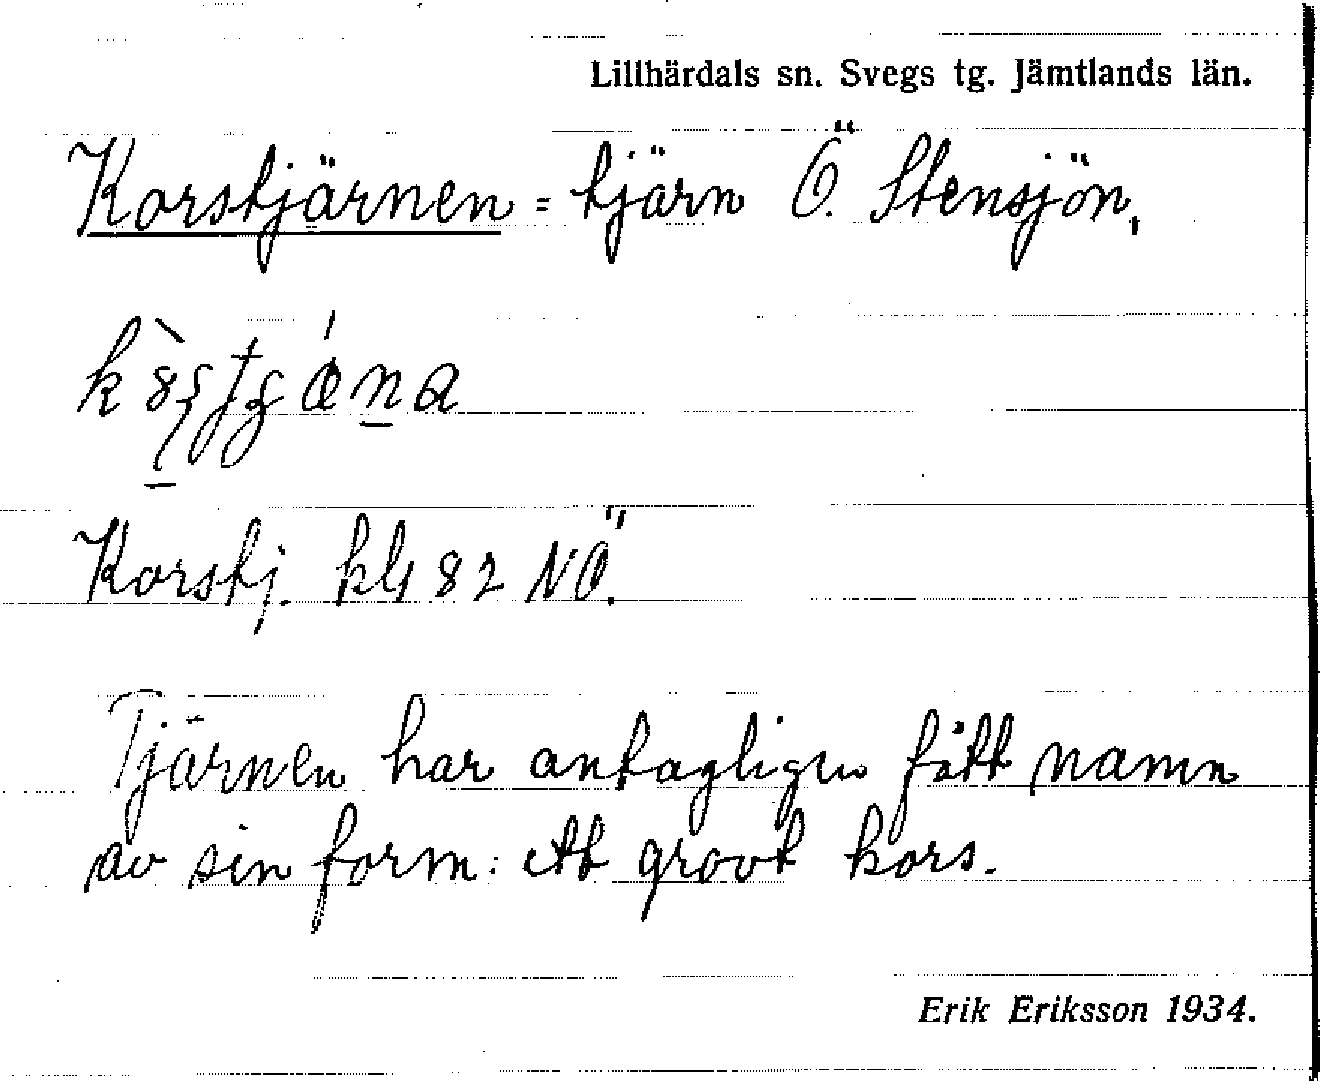 Lillhärdals sn. Svegs tg. Jämtlands län.
Korstjärnen = tjärn Ö. Stensjön,
Korstj. kbl 82 NÖ.
Tjärnen har antagligen fått namn
av sin form: ett grovt kors.
Erik Eriksson 1934.